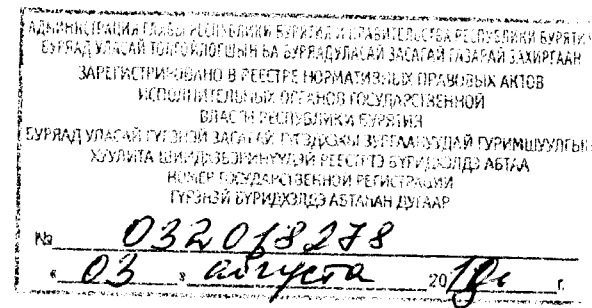 АДМИНИСТРАЦИЯ ГЛАВЫ РЕСПУБЛИКИ БУРЯТИЯ И ПРАВИТЕЛЬСТВА РЕСПУБЛИКИ БУРЯТИЯ
БУРЯАД УЛАСАЙ ТОЛГОЙЛОГШЫН БА БУРЯАД УЛАСАЙ ЗАСАГАЙ ГАЗАРАЙ ЗАХИРГААН
ЗАРЕГИСТРИРОВАНО В РЕЕСТРЕ НОРМАТИВНЫХ ПРАВОВЫХ АКТОВ
ИСПОЛНИТЕЛЬНЫХ ОРГАНОВ ГОСУДАРСТВЕННОЙ
ВЛАСТИ РЕСПУБЛИКИ БУРЯТИЯ
БУРЯАД УЛАСАЙ ГҮРЭНЭЙ ЗАСАГАЙ ГҮЙСЭДХЭХЫ ЗУРГААНУУДАЙ ГУРИМШУУЛГЫН
ХУУЛИТА ШИИДХЭБЭРИНҮҮДЭЙ РЕЕСТРТЭ БҮРИДХЭЛДЭ АБТАА
НОМЕР ГОСУДАРСТВЕННОЙ РЕГИСТРАЦИИ
ГҮРЭНЭЙ БҮРИДХЭЛДЭ АБТАҺАН ДУГААР
№ 032018278
" 03 " августа 2018 г.